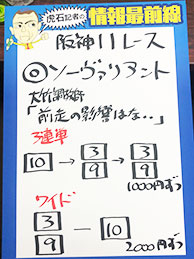 虎石記者の
情報最前線
阪神11レース
◎ソーヴァリアント
大竹調教師
「前走の影響はな‥」
3連単
10 → 3 → 3
9 9
1000円ずつ
ワイド
3
9 — 10
2000円ずつ